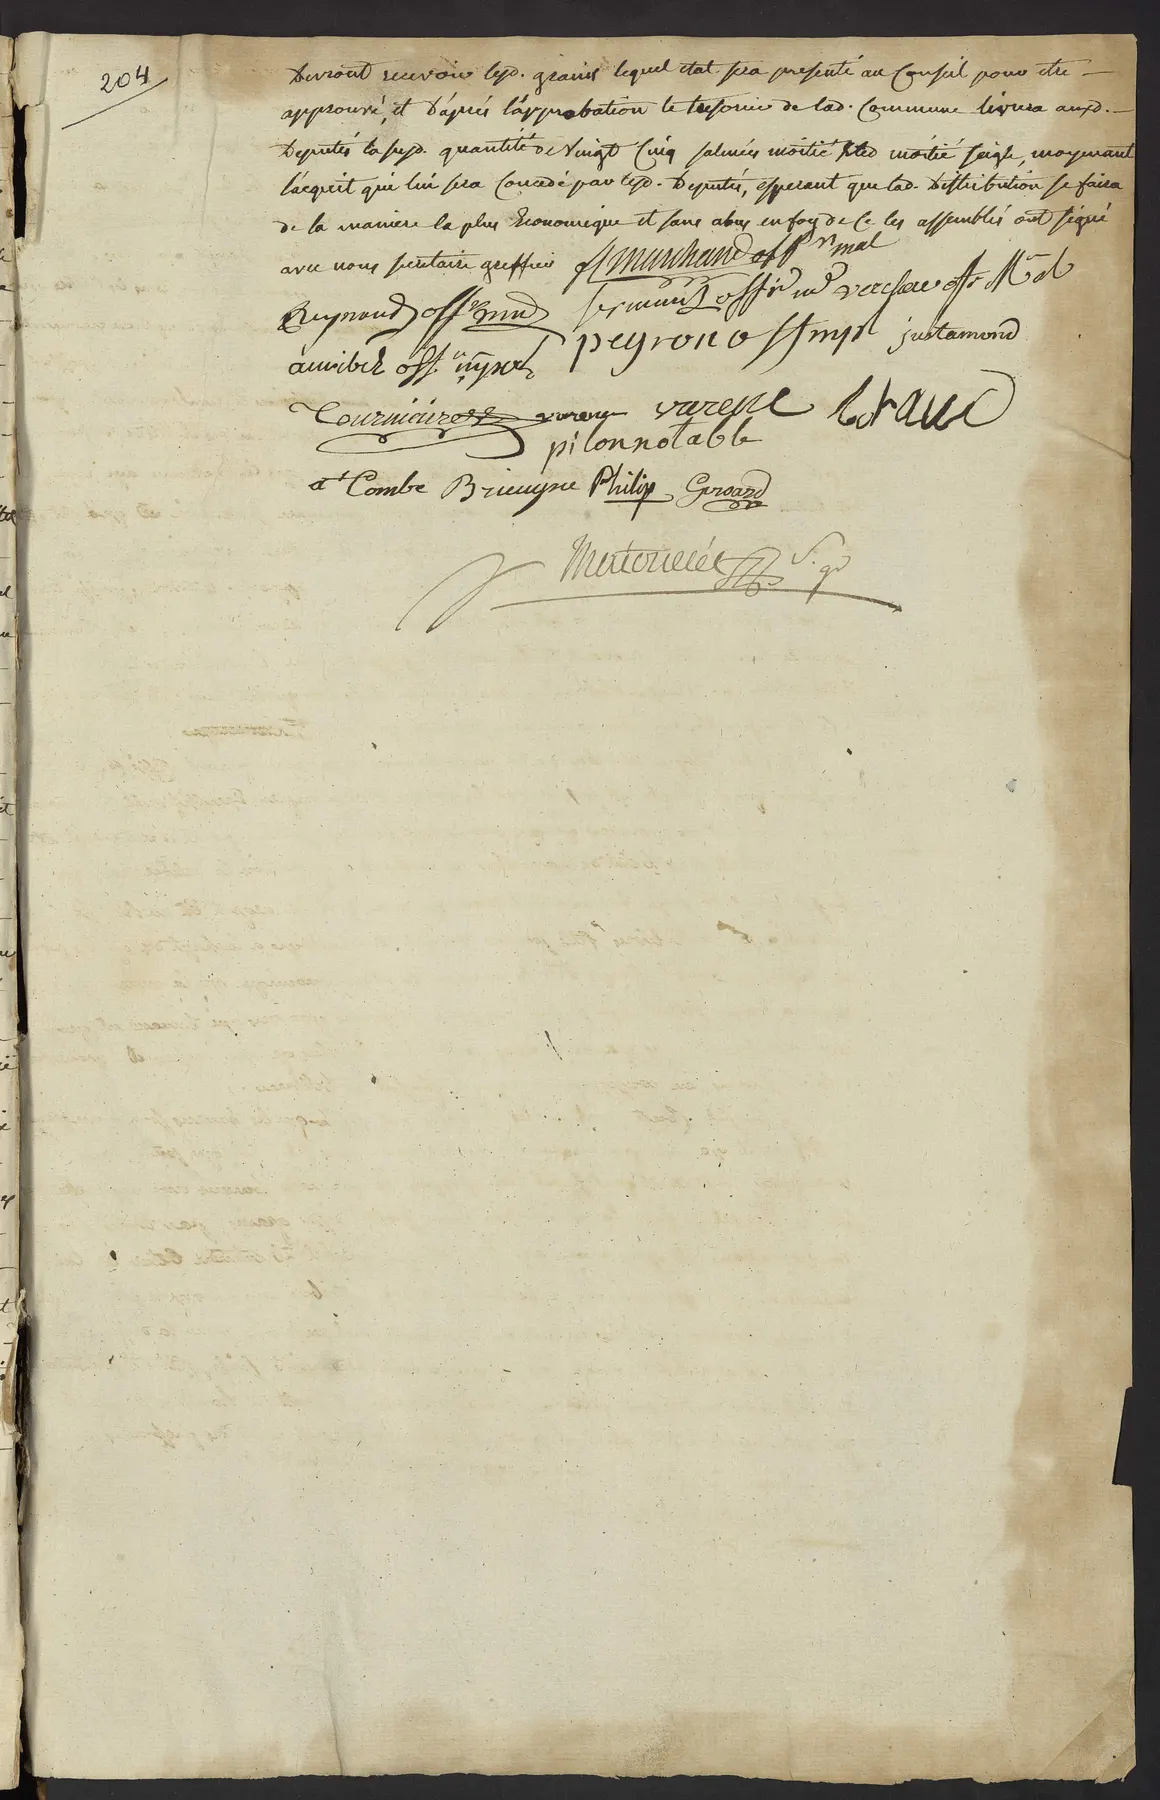 204
Devront recevoir lesd. grains lequel etat sera presenté au Conseil pour etre
approuvé, et D'aprés l'approbation le tresorier de lad. Commune livrera auxd.
Deputés la susd. quantité de Vingt Cinq salmées moitié bled moitié seigle, moyenant
l'acquit qui lui sera Concedé par lesd. Deputés, esperant que lad. Distribution se faira
de la maniere la plus Economique et sans abus en foy de Ce les assemblés ont signé
avec nous secretaire greffier marchand off. mal
Reynaud off. mul
amibel off.
peyron off mpl justamond
Tourniaire varene varene
pilon notable
at Combe Brieugne Philip Girard